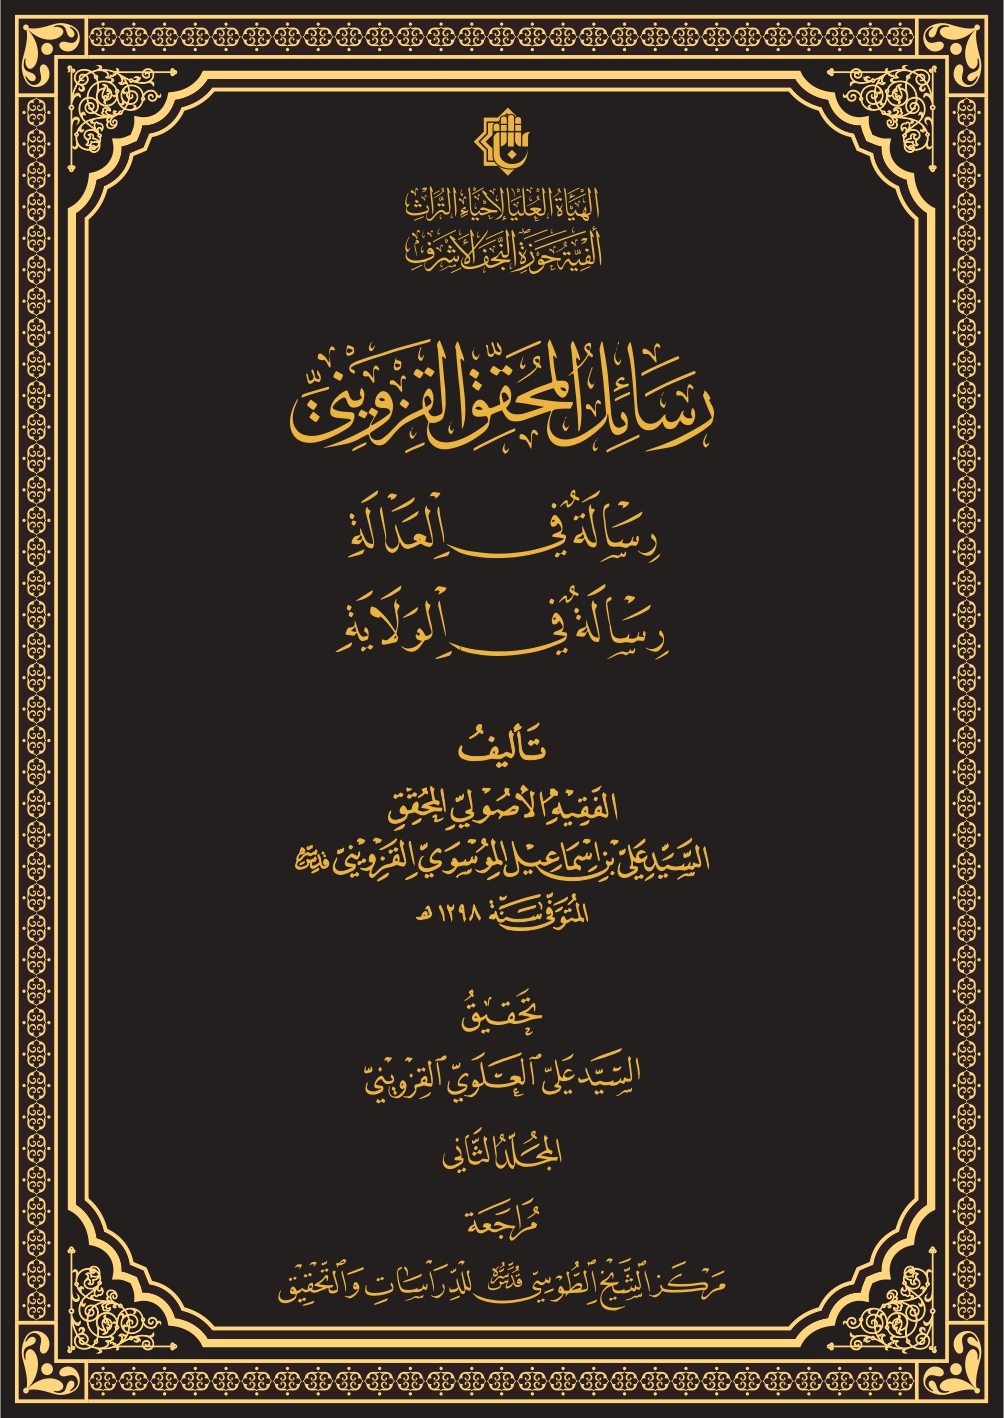 الهيأة العليا لإحياء التراث
ألفية حوزة النجف الأشرف
رَسَائِلُ المُحَقِّقِ القَزْوِينِيِّ
رِسَالَةٌ فِي العَدَالَةِ
رِسَالَةٌ فِي الوَلَايَةِ
تَأليفُ
الفَقِيهِ الأُصُوليِّ المُحَقِّقِ
السَّيِّدِ عَلِيِّ بْنِ إِسْمَاعِيلَ المُوْسَوِيِّ القَزْوِيْنِيِّ قدس سره
المُتَوَفَّى سَنَة ١٢٩٨ هـ
تَحْقيقُ
السَّيِّد عَلِيّ العَلَوِيّ القزوينيّ
المُجَلَّدُ الثَّاني
مُرَاجَعَة
مَرْكَز الشَّيْخ الطُّوسِيّ قدس سره للدِّرَاسَاتِ وَالتَّحْقِيقِ